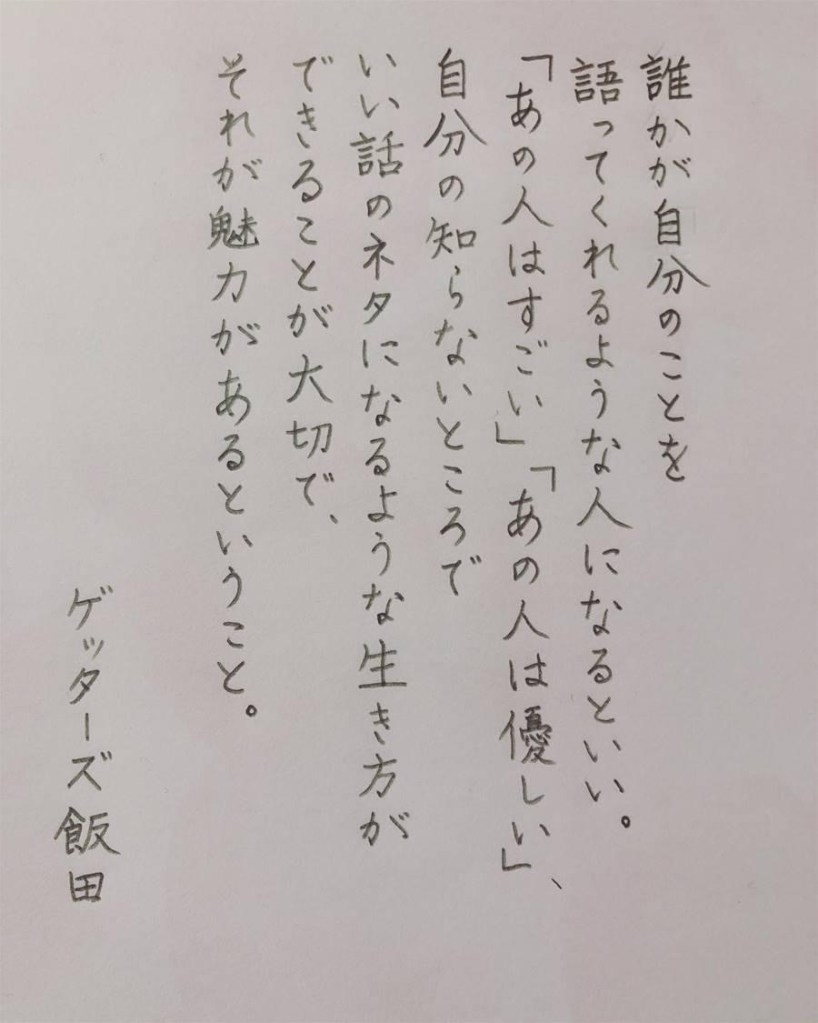 誰かが自分のことを
語ってくれるような人になるといい。
「あの人はすごい」「あの人は優しい」、
自分の知らないところで
いい話のネタになるような生き方が
できることが大切で、
それが魅力があるということ。
ゲッターズ飯田